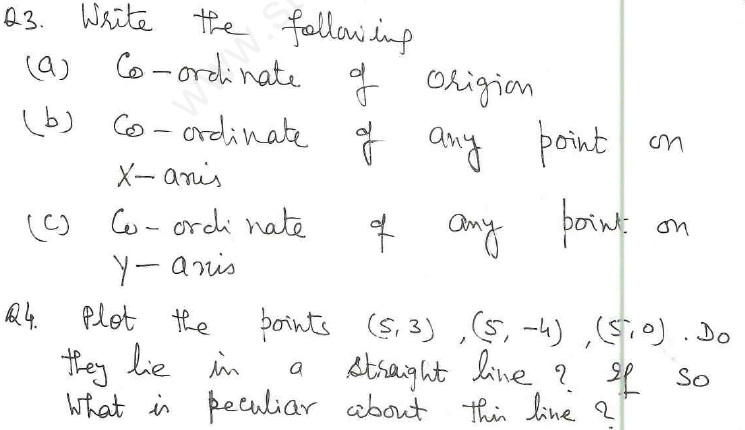 Q3. Write the following
(a) Co-ordinate of origion
(b) Co-ordinate of any point on
X-axis
(c) Co-ordinate of any point on
Y-axis
Q4. Plot the points (5,3), (5, -4), (5,0). Do
they lie in a straight line? If so
What is peculiar about this line?